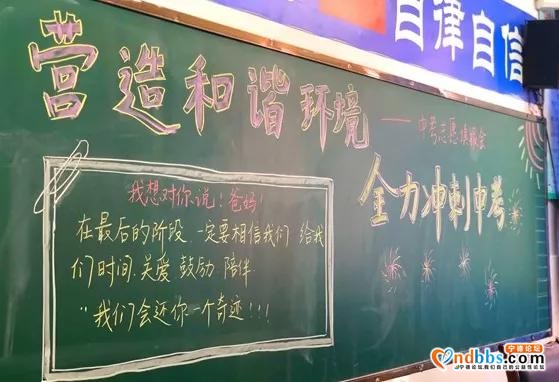 自律自信
营造和谐环境
——中考志愿填报会
全力冲刺中考
我想对你说!爸妈!
在最后的阶段 一定要相信我们 给我
们时间.关爱 鼓励 陪伴.
"我们会还你一个奇迹!!!
宁德论坛
ndbbs.com
宁德论坛,我们自己的公益性论坛